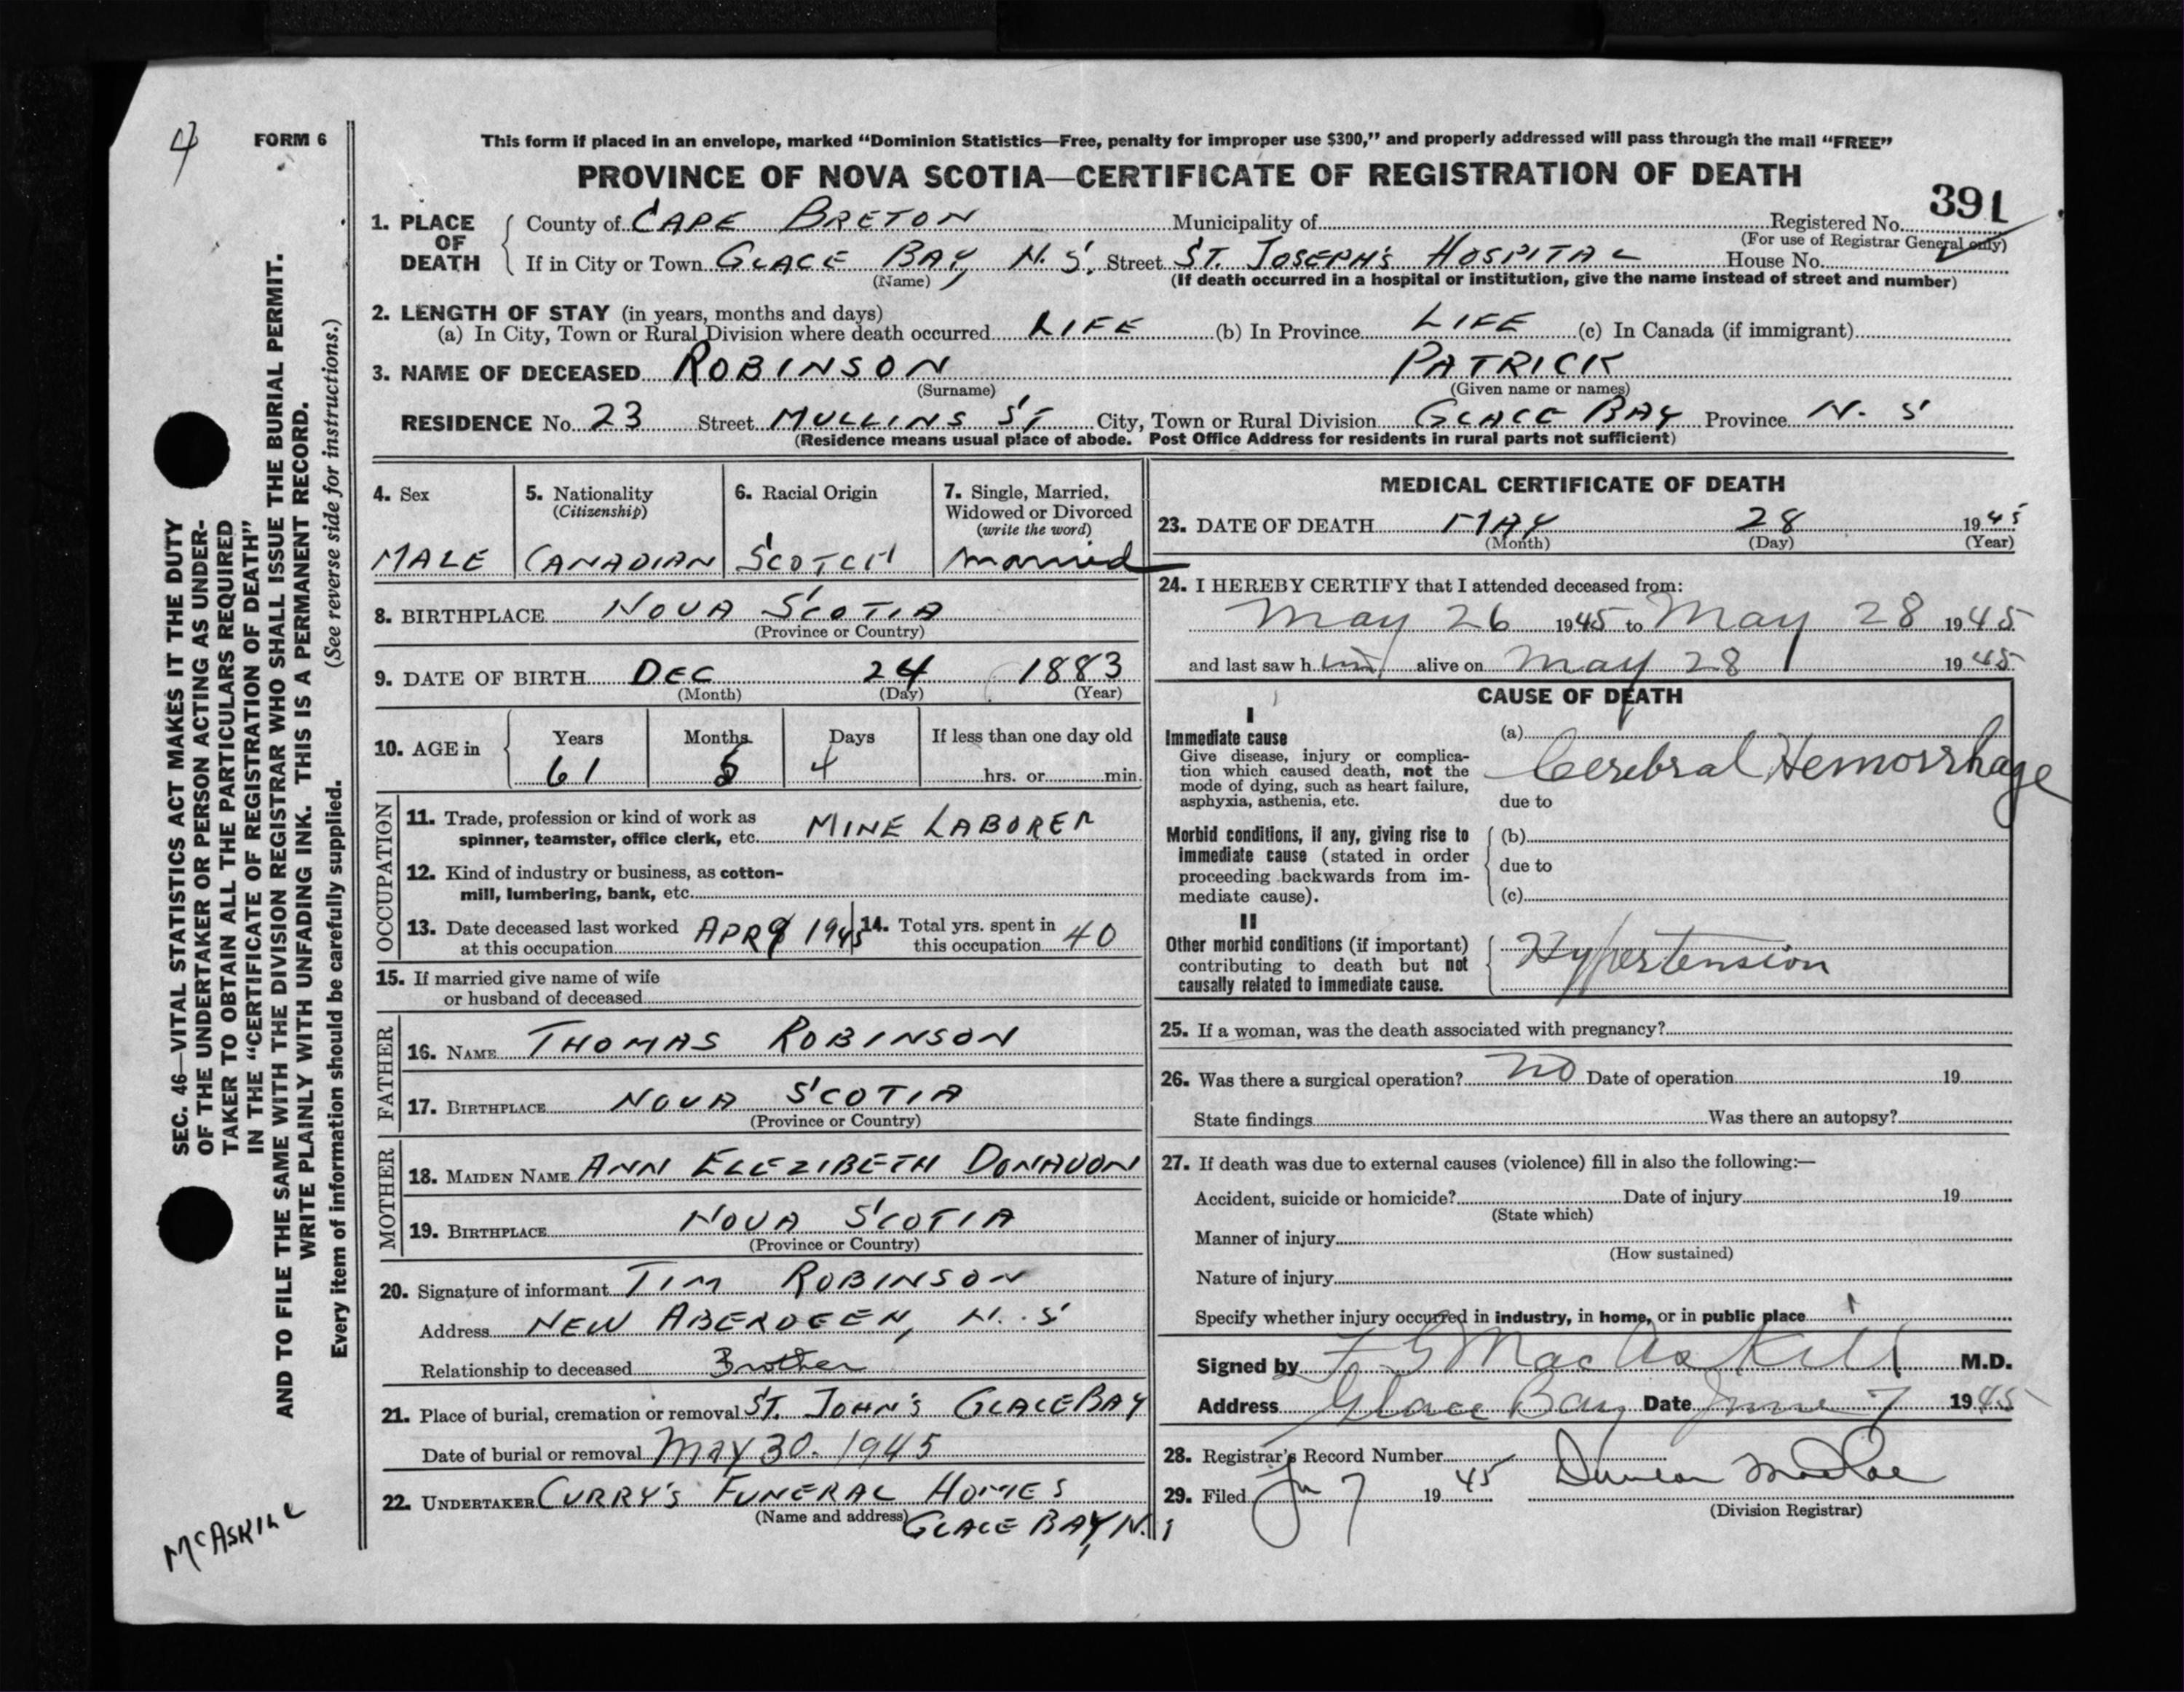 4
FORM 6
This form if placed in an envelope, marked “Dominion Statistics—Free, penalty for improper use $300,” and properly addressed will pass through the mail “FREE”
PROVINCE OF NOVA SCOTIA—CERTIFICATE OF REGISTRATION OF DEATH
391
1. PLACE OF DEATH
County of CAPE BRETON Municipality of Registered No.
(For use of Registrar General only)
If in City or Town GLACE BAY, N.S. Street ST. JOSEPH'S HOSPITAL House No.
(Name) (If death occurred in a hospital or institution, give the name instead of street and number)
2. LENGTH OF STAY (in years, months and days)
(a) In City, Town or Rural Division where death occurred LIFE (b) In Province LIFE (c) In Canada (if immigrant)
3. NAME OF DECEASED ROBINSON PATRICK
(Surname) (Given name or names)
RESIDENCE No. 23 Street MULLINS ST City, Town or Rural Division GLACE BAY Province N. S
(Residence means usual place of abode. Post Office Address for residents in rural parts not sufficient)
4. Sex
MALE
5. Nationality
(Citizenship)
CANADIAN
6. Racial Origin
SCOTCH
7. Single, Married,
Widowed or Divorced
(write the word)
Married
8. BIRTHPLACE NOVA SCOTIA
(Province or Country)
9. DATE OF BIRTH DEC 24 1883
(Month) (Day) (Year)
10. AGE in
Years Months Days If less than one day old
61 5 4 hrs. or min.
OCCUPATION
11. Trade, profession or kind of work as
spinner, teamster, office clerk, etc. MINE LABORER
12. Kind of industry or business, as cotton-
mill, lumbering, bank, etc.
13. Date deceased last worked
at this occupation APR 9 1945
14. Total yrs. spent in
this occupation 40
15. If married give name of wife
or husband of deceased
FATHER
16. NAME THOMAS ROBINSON
17. BIRTHPLACE NOVA SCOTIA
(Province or Country)
MOTHER
18. MAIDEN NAME ANN ELEZIBETH DONAVON
19. BIRTHPLACE NOVA SCOTIA
(Province or Country)
20. Signature of informant TIM ROBINSON
Address NEW ABERDEEN, N. S
Relationship to deceased Brother
21. Place of burial, cremation or removal ST. JOHN'S GLACE BAY
Date of burial or removal MAY 30. 1945
22. UNDERTAKER CURRY'S FUNERAL HOMES
(Name and address) GLACE BAY, N.S
MEDICAL CERTIFICATE OF DEATH
23. DATE OF DEATH MAY 28 1945
(Month) (Day) (Year)
24. I HEREBY CERTIFY that I attended deceased from:
May 26 1945 to May 28 1945
and last saw him alive on May 28 1945
CAUSE OF DEATH
I
Immediate cause
Give disease, injury or complica-
tion which caused death, not the
mode of dying, such as heart failure,
asphyxia, asthenia, etc.
(a) Cerebral Hemorrhage
due to
Morbid conditions, if any, giving rise to
immediate cause (stated in order
proceeding backwards from im-
mediate cause).
(b)
due to
(c)
II
Other morbid conditions (if important)
contributing to death but not
causally related to immediate cause.
Hypertension
25. If a woman, was the death associated with pregnancy?
26. Was there a surgical operation? no Date of operation 19
State findings Was there an autopsy?
27. If death was due to external causes (violence) fill in also the following:—
Accident, suicide or homicide? Date of injury 19
(State which)
Manner of injury
(How sustained)
Nature of injury
Specify whether injury occurred in industry, in home, or in public place
Signed by F G MacAskill M.D.
Address Glace Bay Date June 7 1945
28. Registrar's Record Number
29. Filed Ju 7 19 45 Duncan MacRae
(Division Registrar)
SEC. 46—VITAL STATISTICS ACT MAKES IT THE DUTY
OF THE UNDERTAKER OR PERSON ACTING AS UNDER-
TAKER TO OBTAIN ALL THE PARTICULARS REQUIRED
IN THE “CERTIFICATE OF REGISTRATION OF DEATH”
AND TO FILE THE SAME WITH THE DIVISION REGISTRAR WHO SHALL ISSUE THE BURIAL PERMIT.
WRITE PLAINLY WITH UNFADING INK. THIS IS A PERMANENT RECORD.
Every item of information should be carefully supplied. (See reverse side for instructions.)
McASKILL